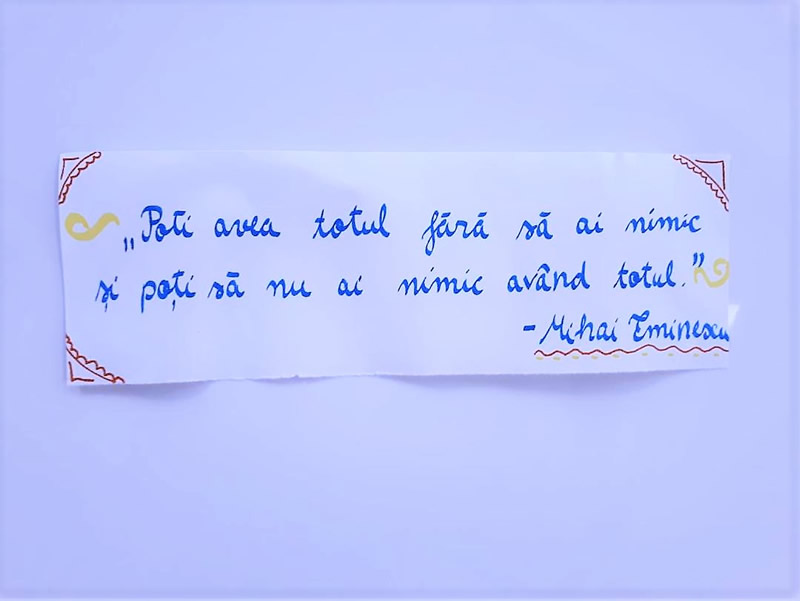 „Poti avea totul fără să ai nimic
și poți să nu ai nimic având totul.”
- Mihai Eminescu